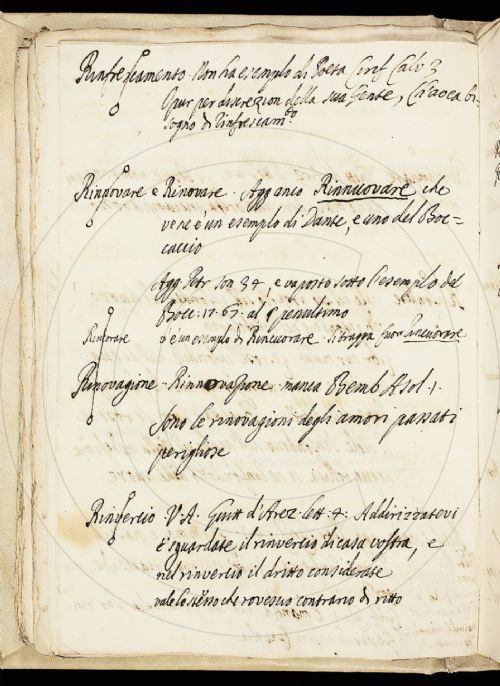 Rinfrescamento. Non ha esempio di Poeta Cirif. Calv. 3
Pur per discrezion della sua gente, Ch'avea bi-
sogno di rinfrescam.to
Rinnovare e Rinovare. Agg. anco Rinnuovare che
ve ne è un esempio di Dante, e uno del Boc=
caccio
Agg. Petr. son. 34, e va posto sotto l'esempio del
Bocc. 17. 67. al § penultimo
v'è un esempio di Rincuorare. Si trappa fuor Rincuorare
Rincorare
Rinovagione. Rinnovazione. manca Bemb. Asol. 1.
Sono le rinovagioni degli amori passati
perigliose
Rinvercio V. A. Guitt. d'Arez. lett. 4. Addirizzatevi
e sguardate il rinvercio di casa vostra, e
nel rinvercio il dritto considerate
vale lo stesso che rovescio contrario di ritto